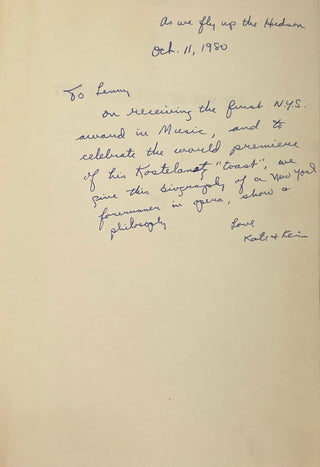 As we fly up the Hudson
Oct. 11, 1980
To Lenny
on receiving the first N.Y.S.
award in Music, and to
celebrate the world premiere
of his Kostelanetz "toast", we
give this biography of a New York
forerunner in opera, show &
philosophy
Love
Kate &